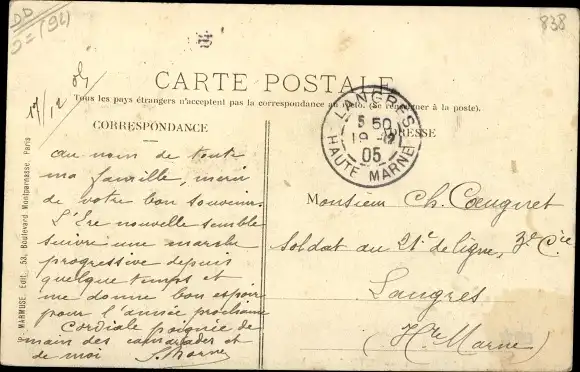 DD
(94)
838
CARTE POSTALE
Tous les pays étrangers n'acceptent pas la correspondance au recto. (Se renseigner à la poste).
17/12 04
CORRESPONDANCE
au nom de toute
ma famille, merci
de votre bon souvenir.
L'Ere nouvelle semble
suivre une marche
progressive depuis
quelque temps et
me donne bon espoir
pour l'année prochaine
Cordiale poignée de
main des camarades et
de moi
MARMUSE, Edit. 53, Boulevard Montparnasse, Paris
LANGRES
5 50
19 -12
05
HAUTE MARNE
ADRESSE
Monsieur Ch. Coeugnet
Soldat au 21e de ligne, 3e Cie
Langres
(Hte Marne)